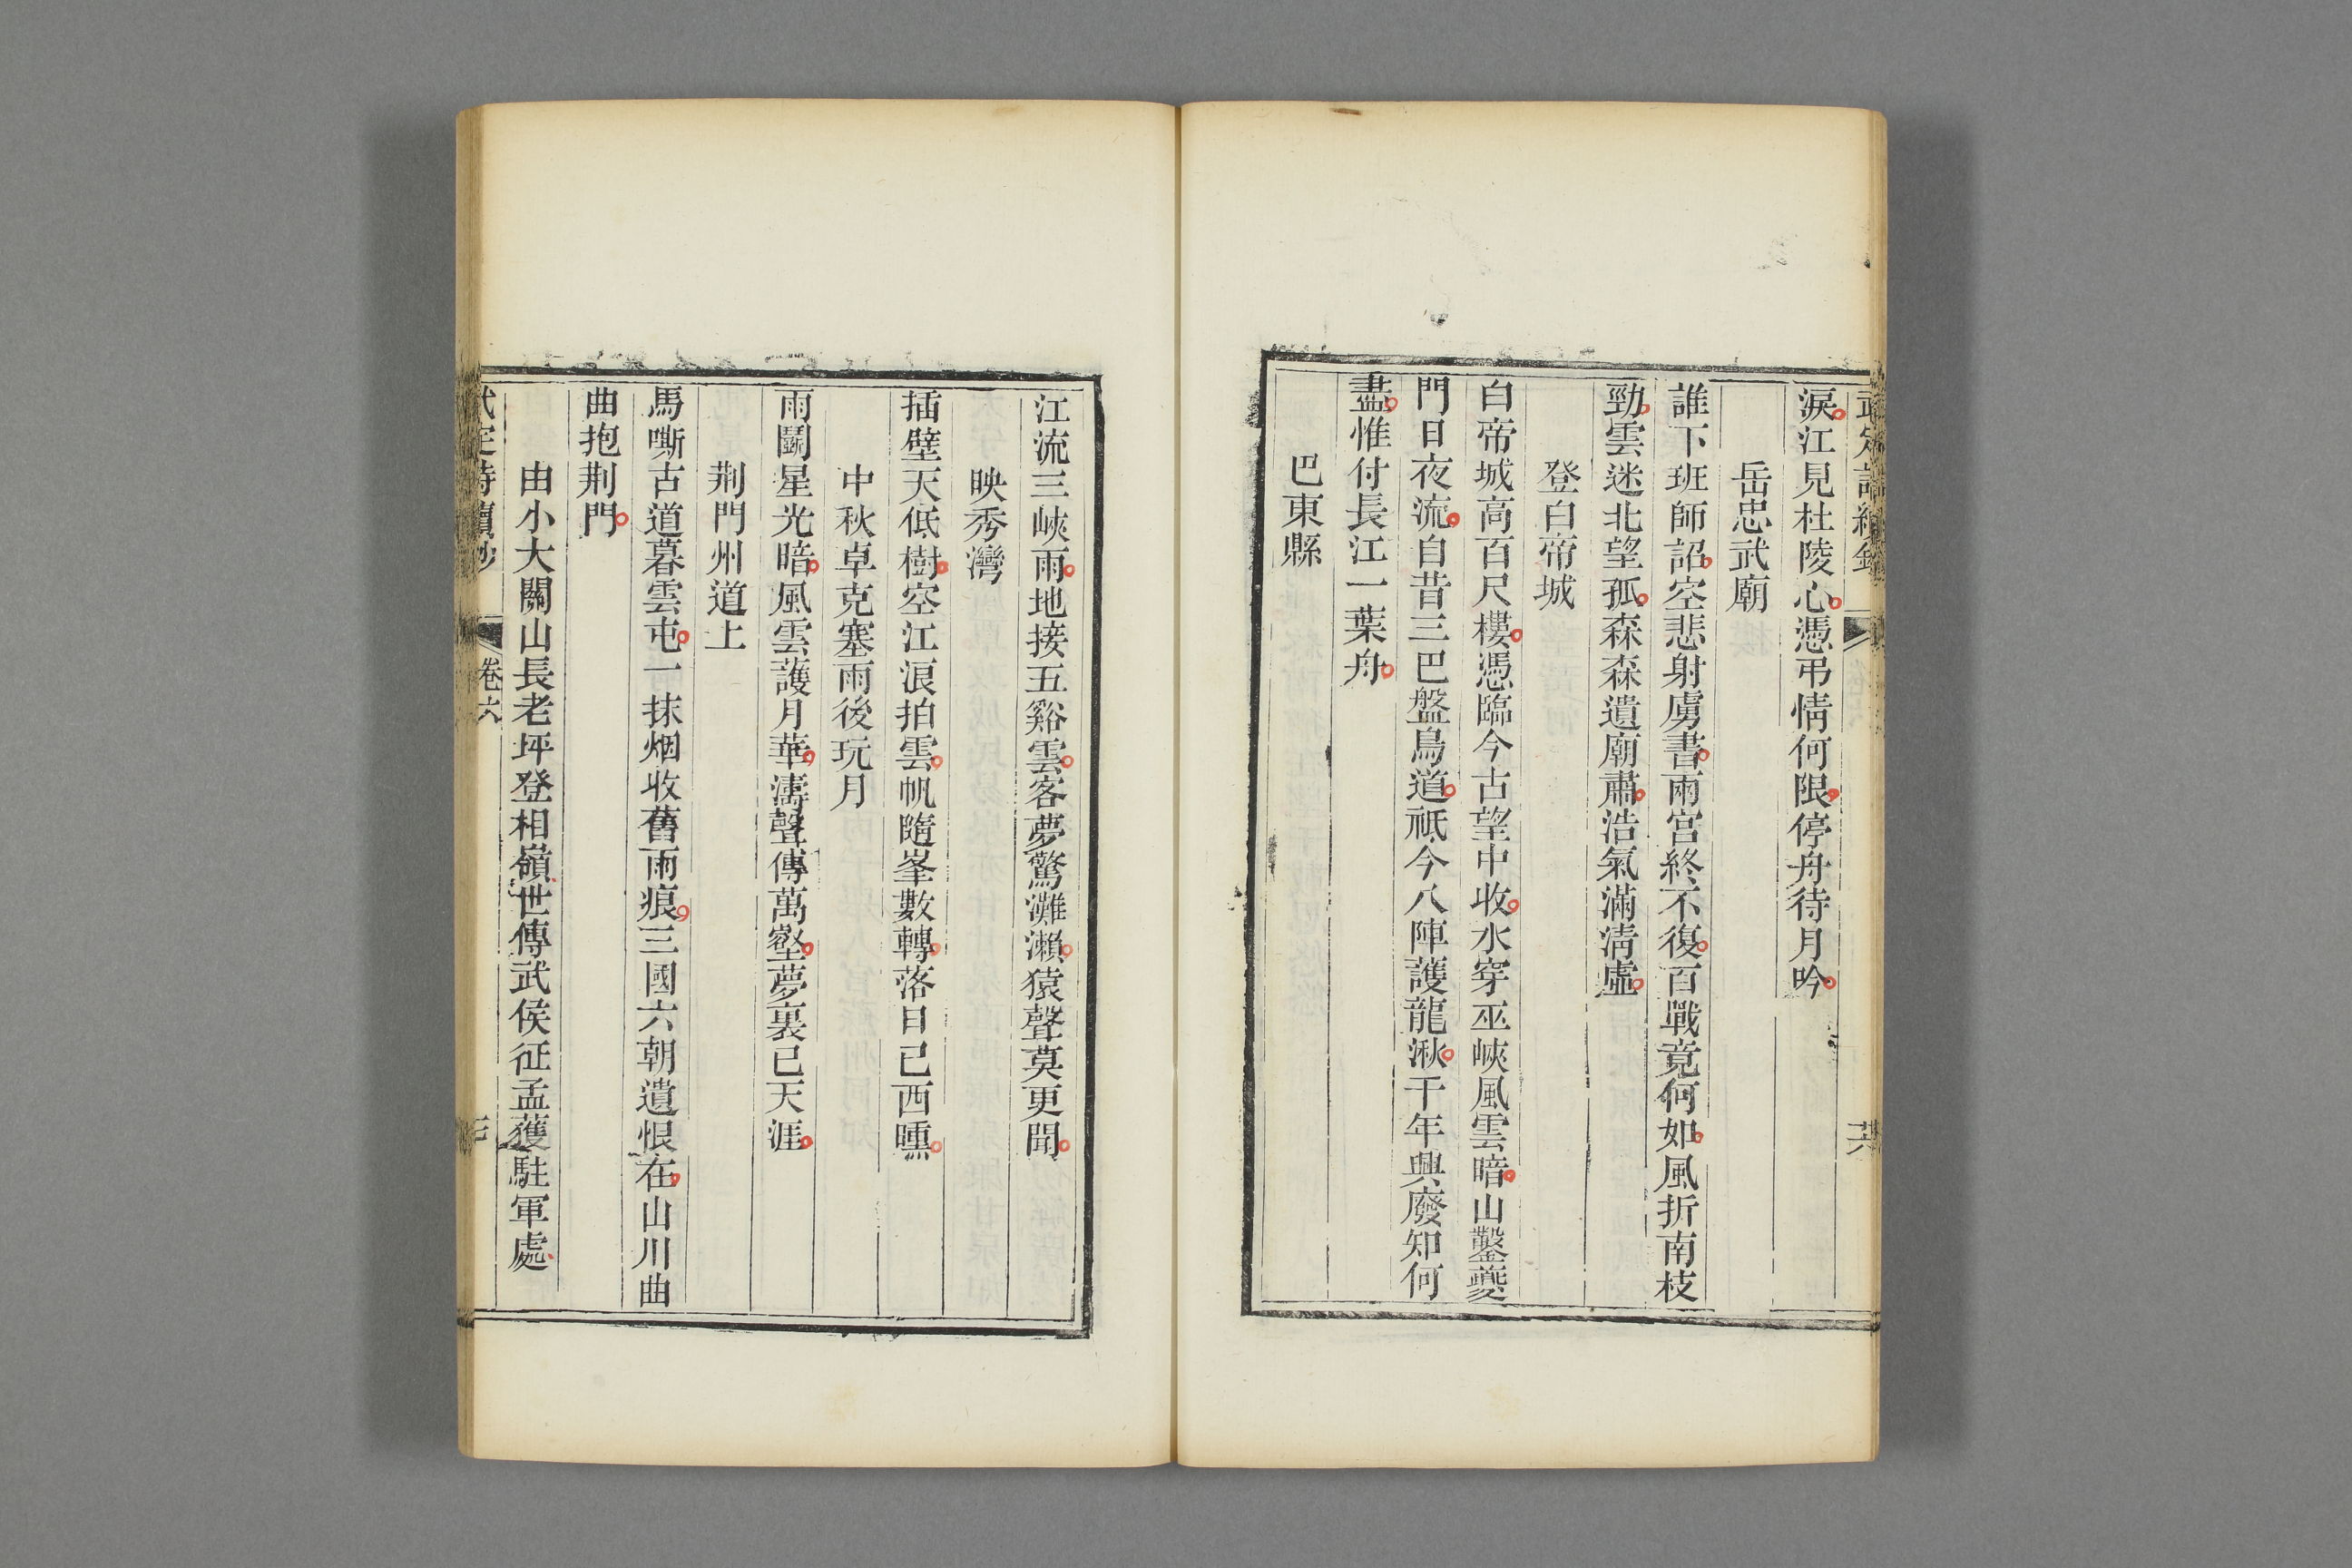 淚江見杜陵心憑弔情何限停舟待月吟
岳忠武廟
誰下班師詔空悲射虜書兩宮終不復百戰竟何如風折南枝
勁雲迷北望孤森森遺廟肅浩氣滿淸虛
登白帝城
白帝城高百尺樓憑臨今古望中收水穿巫峽風雲暗山鑿夔
門日夜流自昔三巴盤鳥道祇今八陣護龍湫千年興廢知何
盡惟付長江一葉舟
巴東縣
江流三峽雨地接五谿雲客夢驚灘瀨猿聲莫更聞
映秀灣
插壁天低樹空江浪拍雲帆隨峯數轉落日已西曛
中秋卓克塞雨後玩月
雨鬭星光暗風雲護月華濤聲傳萬壑夢裏已天涯
荆門州道上
馬嘶古道暮雲屯一抹烟收舊雨痕三國六朝遺恨在山川曲
曲抱荆門
由小大關山長老坪登相嶺世傳武侯征孟獲駐軍處
卷六